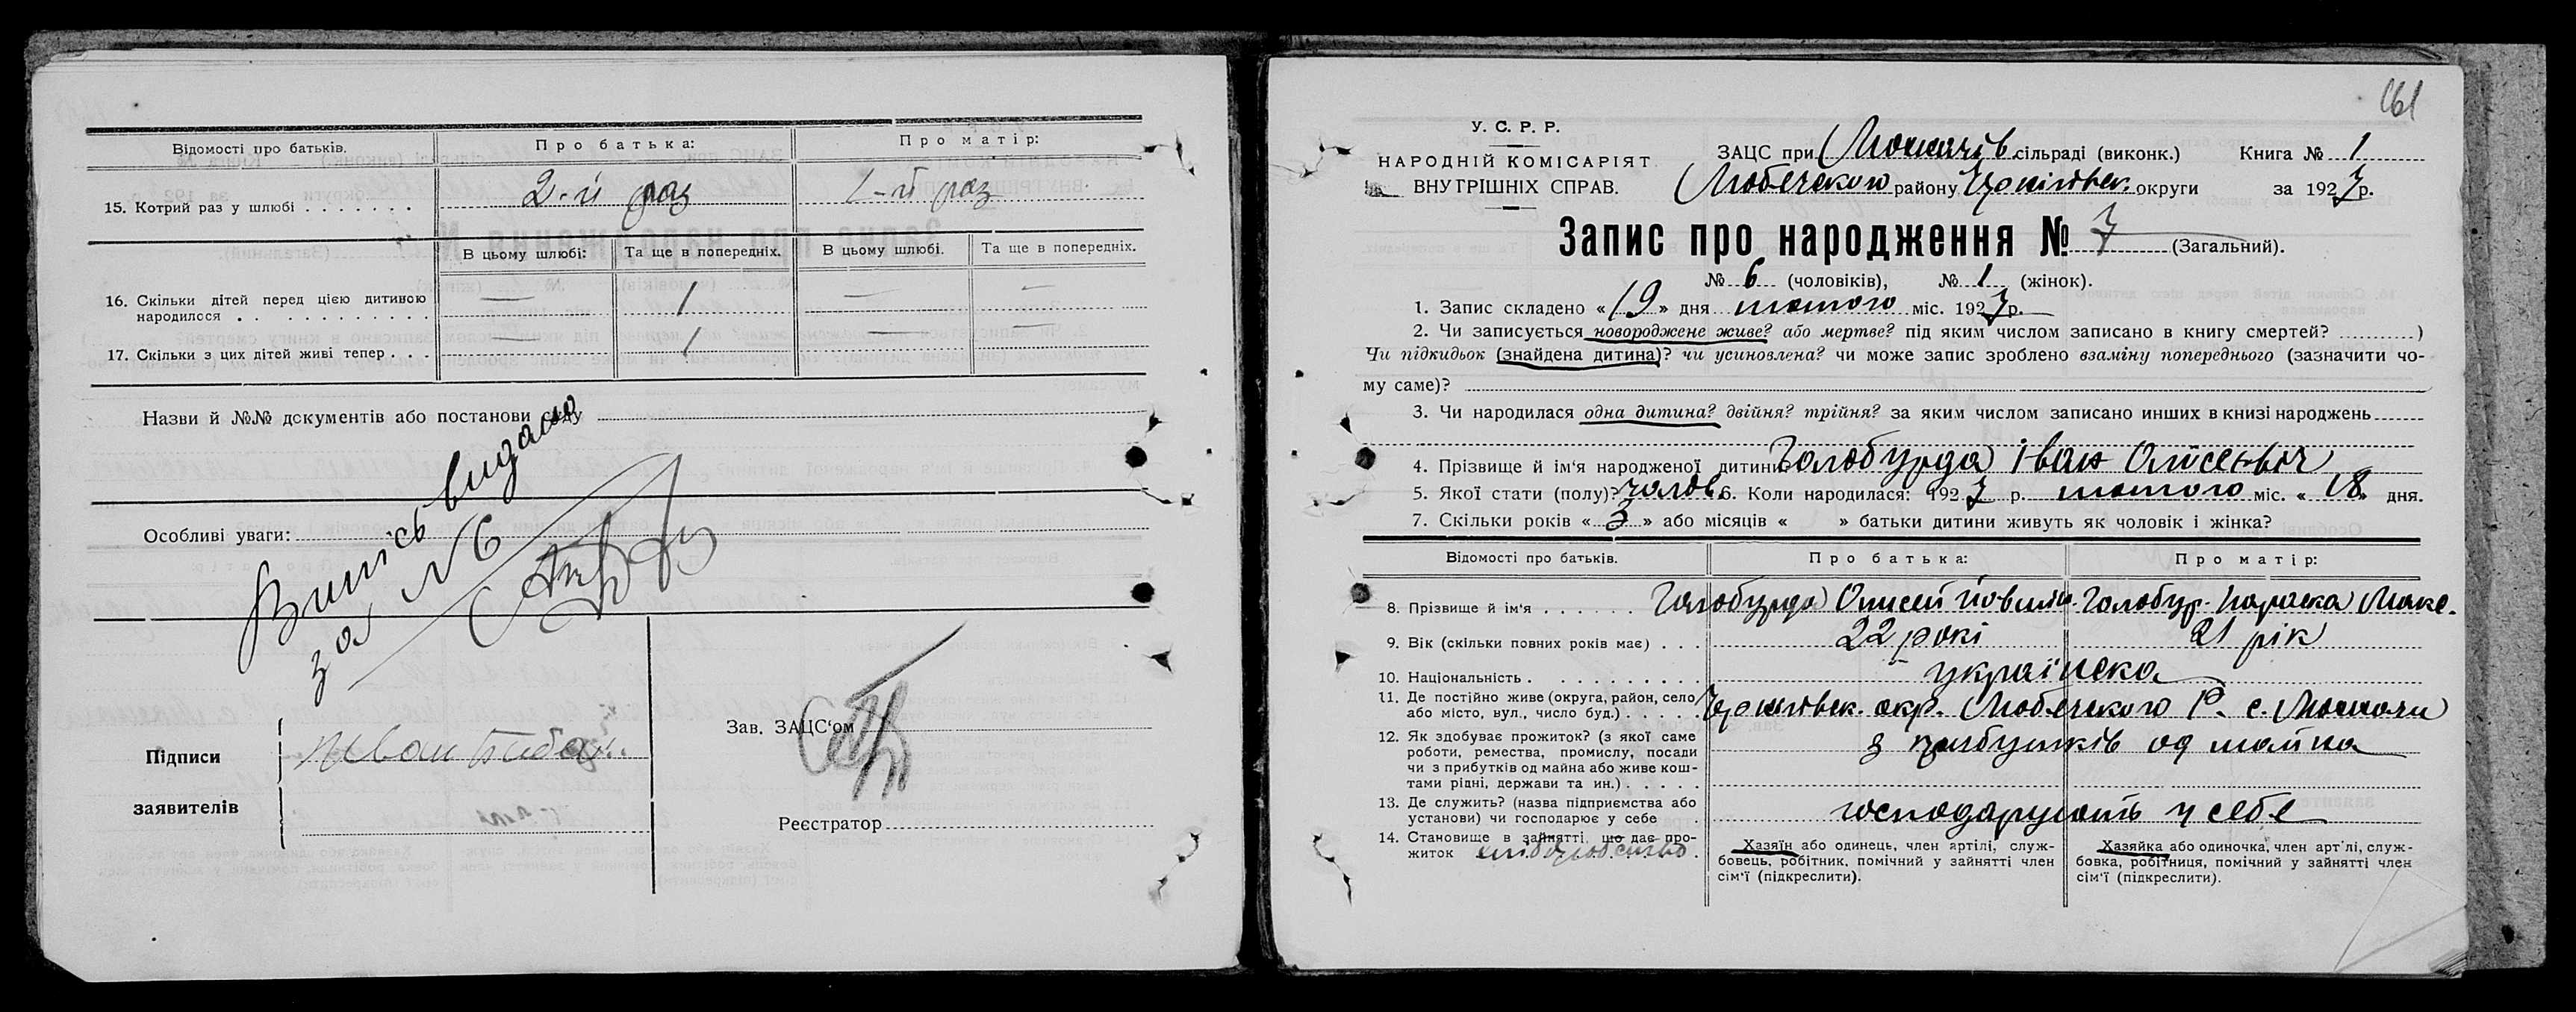 Відомості про батьків. Про батька: Про матір:
15. Котрий раз у шлюбі . . . . . . . 2-й раз 1-й раз
В цьому шлюбі: Та ще в попередніх. В цьому шлюбі. Та ще в попередніх.
16. Скільки дітей перед цією дитиною
народилося . . . . . . . . . . . — 1 — —
17. Скільки з цих дітей живі тепер . . . — 1 — —
Назви й №№ документів або постанови суду
Особливі уваги:
Випісь видано
за № 6
Підписи
заявителів
Іван
Зав. ЗАЦС'ом
Реєстратор
161
У. С. Р. Р.
НАРОДНІЙ КОМІСАРІЯТ
ВНУТРІШНІХ СПРАВ.
ЗАЦС при сільраді (виконк.) Книга № 1
Любечского району Чернігівск. округи за 1927 р.
Запис про народження № 7 (Загальний).
№ 6 (чоловіків), № 1 (жінок).
1. Запис складено « 19 » дня лютого міс. 1927 р.
2. Чи записується новороджене живе? або мертве? під яким числом записано в книгу смертей? )
Чи підкидьок (знайдена дитина)? чи усиновлена? чи може запис зроблено взаміну попереднього (зазначити чо-
му саме)?
3. Чи народилася одна дитина? двійня? трійня? за яким числом записано инших в книзі народжень
4. Прізвище й ім'я народженої дитини Голобурда Іван Олісеєвіч
5. Якої стати (полу)? чолов. 6. Коли народилася: 1927 р. лютого міс. « 18 » дня.
7. Скільки років « 3 » або місяців « » батьки дитини живуть як чоловік і жінка?
Відомості про батьків. Про батька: Про матір:
8. Прізвище й ім'я . . . . . . Голобурда Олисей Голобур. Параска Макс.
9. Вік (скільки повних років має) . . . 22 рокі 21 рік
10. Національність . . . . . . . . . . українска
11. Де постійно живе (округа, район, село
або місто, вул., число буд.) . . . . . Чернігівск. окр. Любечского Р. с.
12. Як здобуває прожиток? (з якої саме
роботи, ремества, промислу, посади
чи з прибутків од майна або живе кош-
тами рідні, держави та ин.) . . . . . з прибутків од майна
13. Де служить? (назва підприємства або
установи) чи господарює у себе . господарують у себе
14. Становище в зайнятті що дає про-
житок хліборобство.
Хазяїн або одинець, член артілі, служ-
бовець, робітник, помічний у зайнятті член
сім'ї (підкреслити).
Хазяйка або одиночка, член арт'лі, служ-
бовка, робітниця, помічний у зайнятті член
сім'ї (підкреслити).